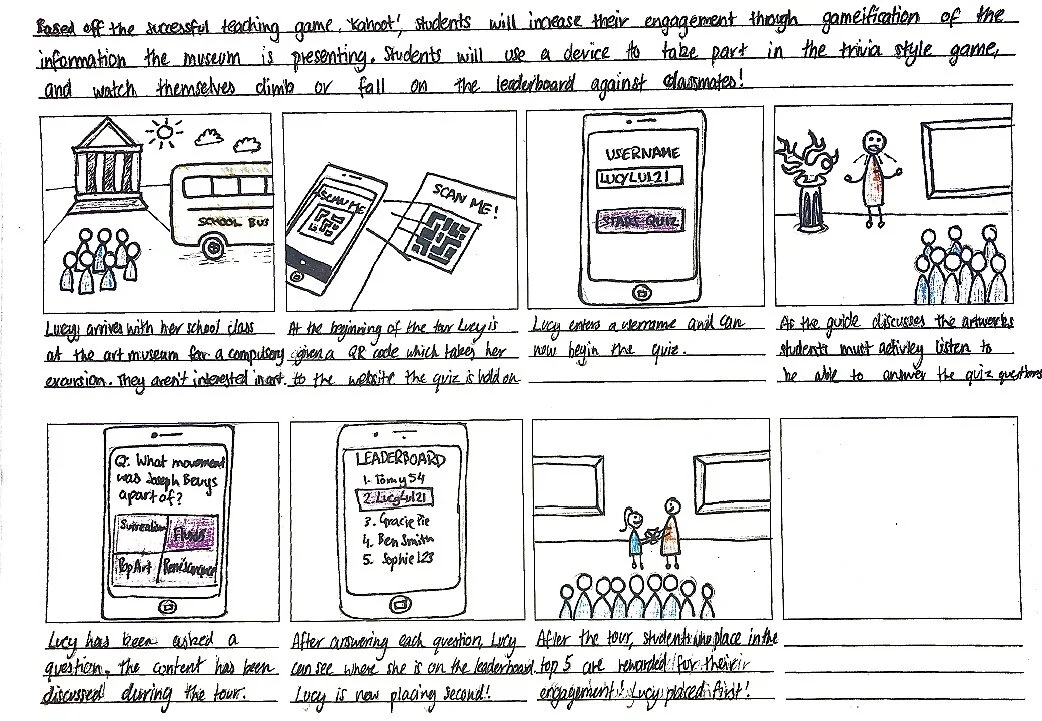 Based off the successful teaching game, 'Kahoot', students will increase their engagement through gameification of the
information the museum is presenting. Students will use a device to take part in the trivia style game,
and watch themselves climb or fall on the leaderboard against classmates!
SCHOOL BUS
SCAN ME
SCAN ME!
USERNAME
LUCYLU121
START QUIZ
Lucy arrives with her school class
at the art museum for a compulsory
excursion. They aren't interested in art.
At the beginning of the tour Lucy is
given a QR code which takes her
to the website the quiz is held on
Lucy enters a username and can
now begin the quiz.
As the guide discusses the artworks
students must activley listen to
be able to answer the quiz questions
Q: What movement
was Joseph Beuys
apart of?
Surrealism
Fluxus
Pop Art
Renaissance
LEADERBOARD
1. Tomy54
2. LucyLu121
3. Gracie Pie
4. Ben Smith
5. Sophie123
Lucy has been asked a
question. The content has been
discussed during the tour.
After answering each question, Lucy
can see where she is on the leaderboard.
Lucy is now placing second!
After the tour, students who place in the
top 5 are rewarded for their
engagement! Lucy placed first!